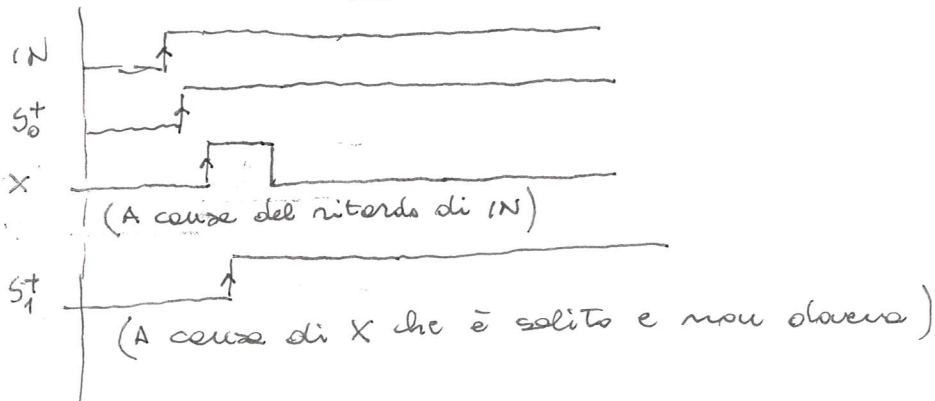 IN
S₀⁺
X
(A causa del ritardo di IN)
S₁⁺
(A causa di X che è salito e non doveva)